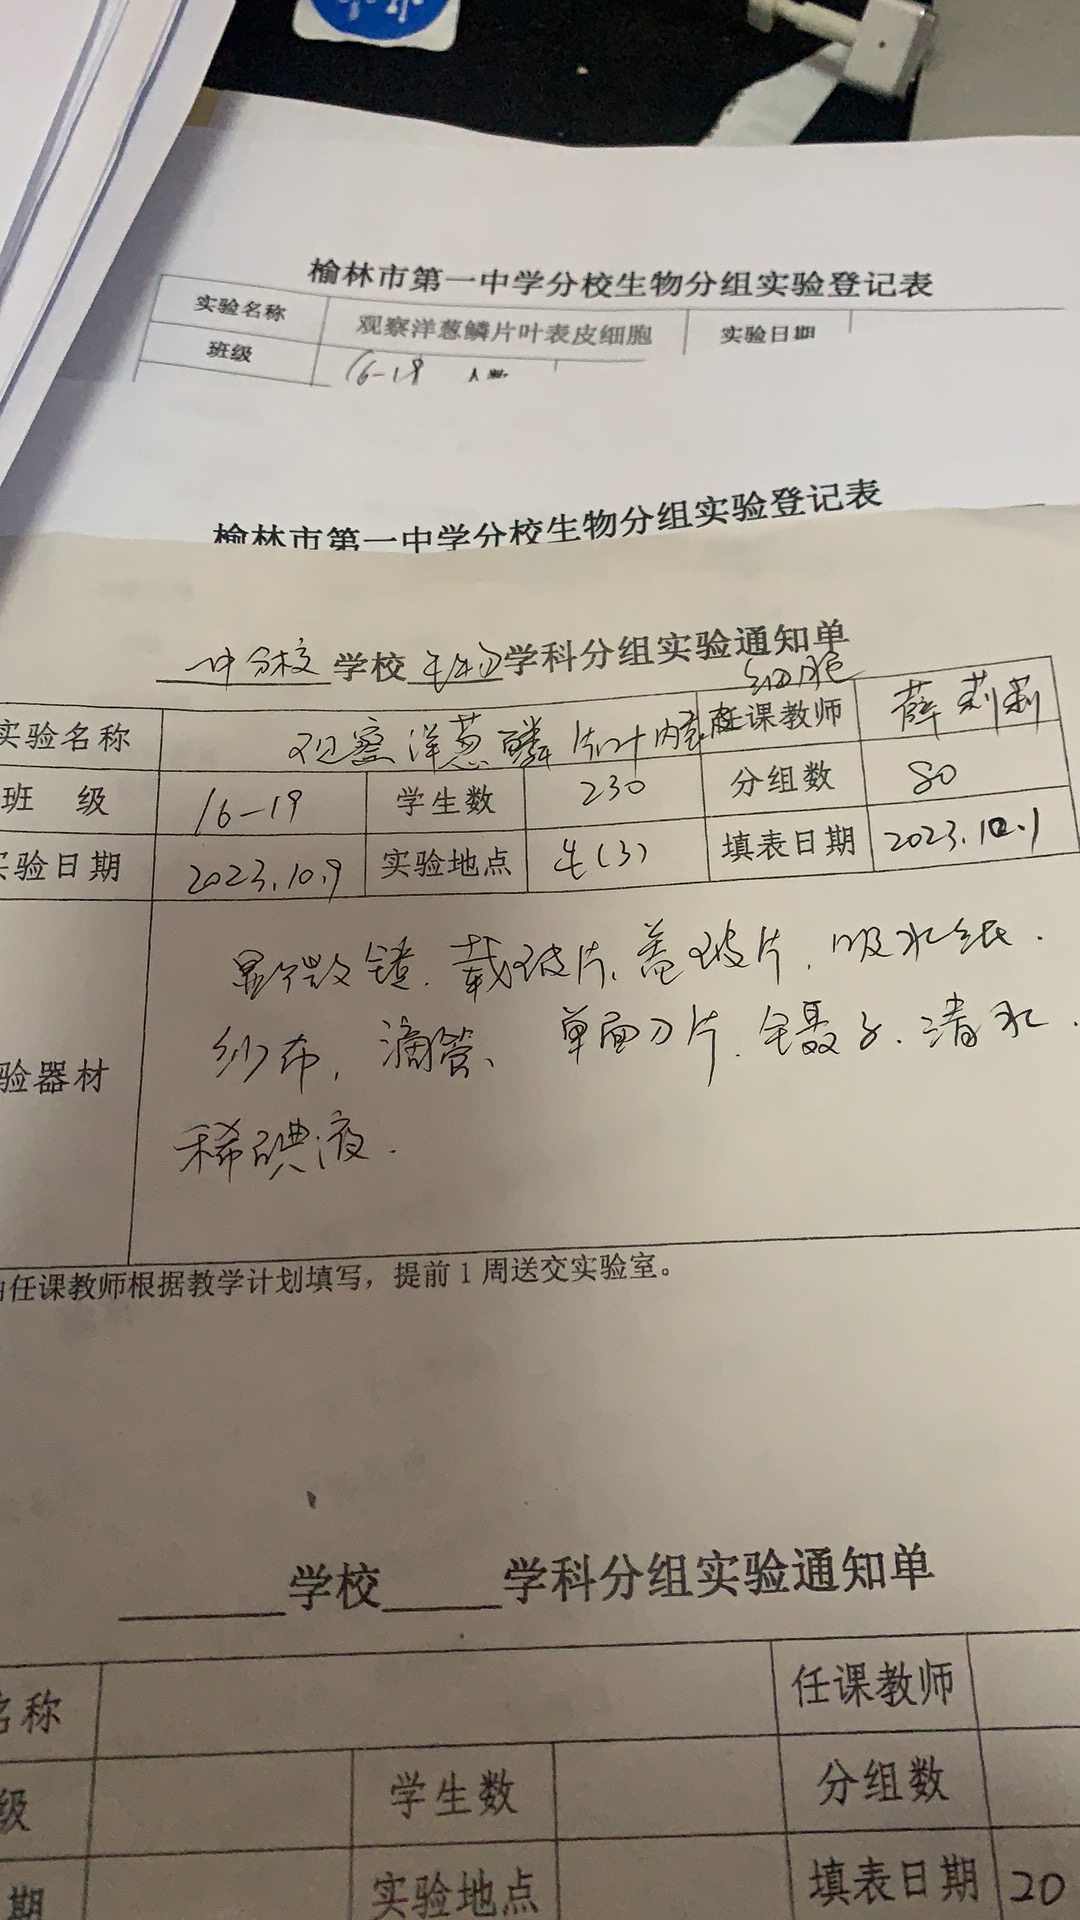 榆林市第一中学分校生物分组实验登记表
实验名称 观察洋葱鳞片叶表皮细胞 实验日期
班级 16-19 人数
榆林市第一中学分校生物分组实验登记表
一中分校学校生物学科分组实验通知单
实验名称 观察洋葱鳞片叶内表皮细胞 任课教师 薛莉莉
班 级 16-19 学生数 230 分组数 80
实验日期 2023.10.9 实验地点 生(3) 填表日期 2023.10.1
显微镜.载玻片、盖玻片.吸水纸.
验器材 纱布,滴管、单面刀片.镊子.清水.
稀碘液.
由任课教师根据教学计划填写，提前1周送交实验室。
学校 学科分组实验通知单
名称 任课教师
级 学生数 分组数
期 实验地点 填表日期 20